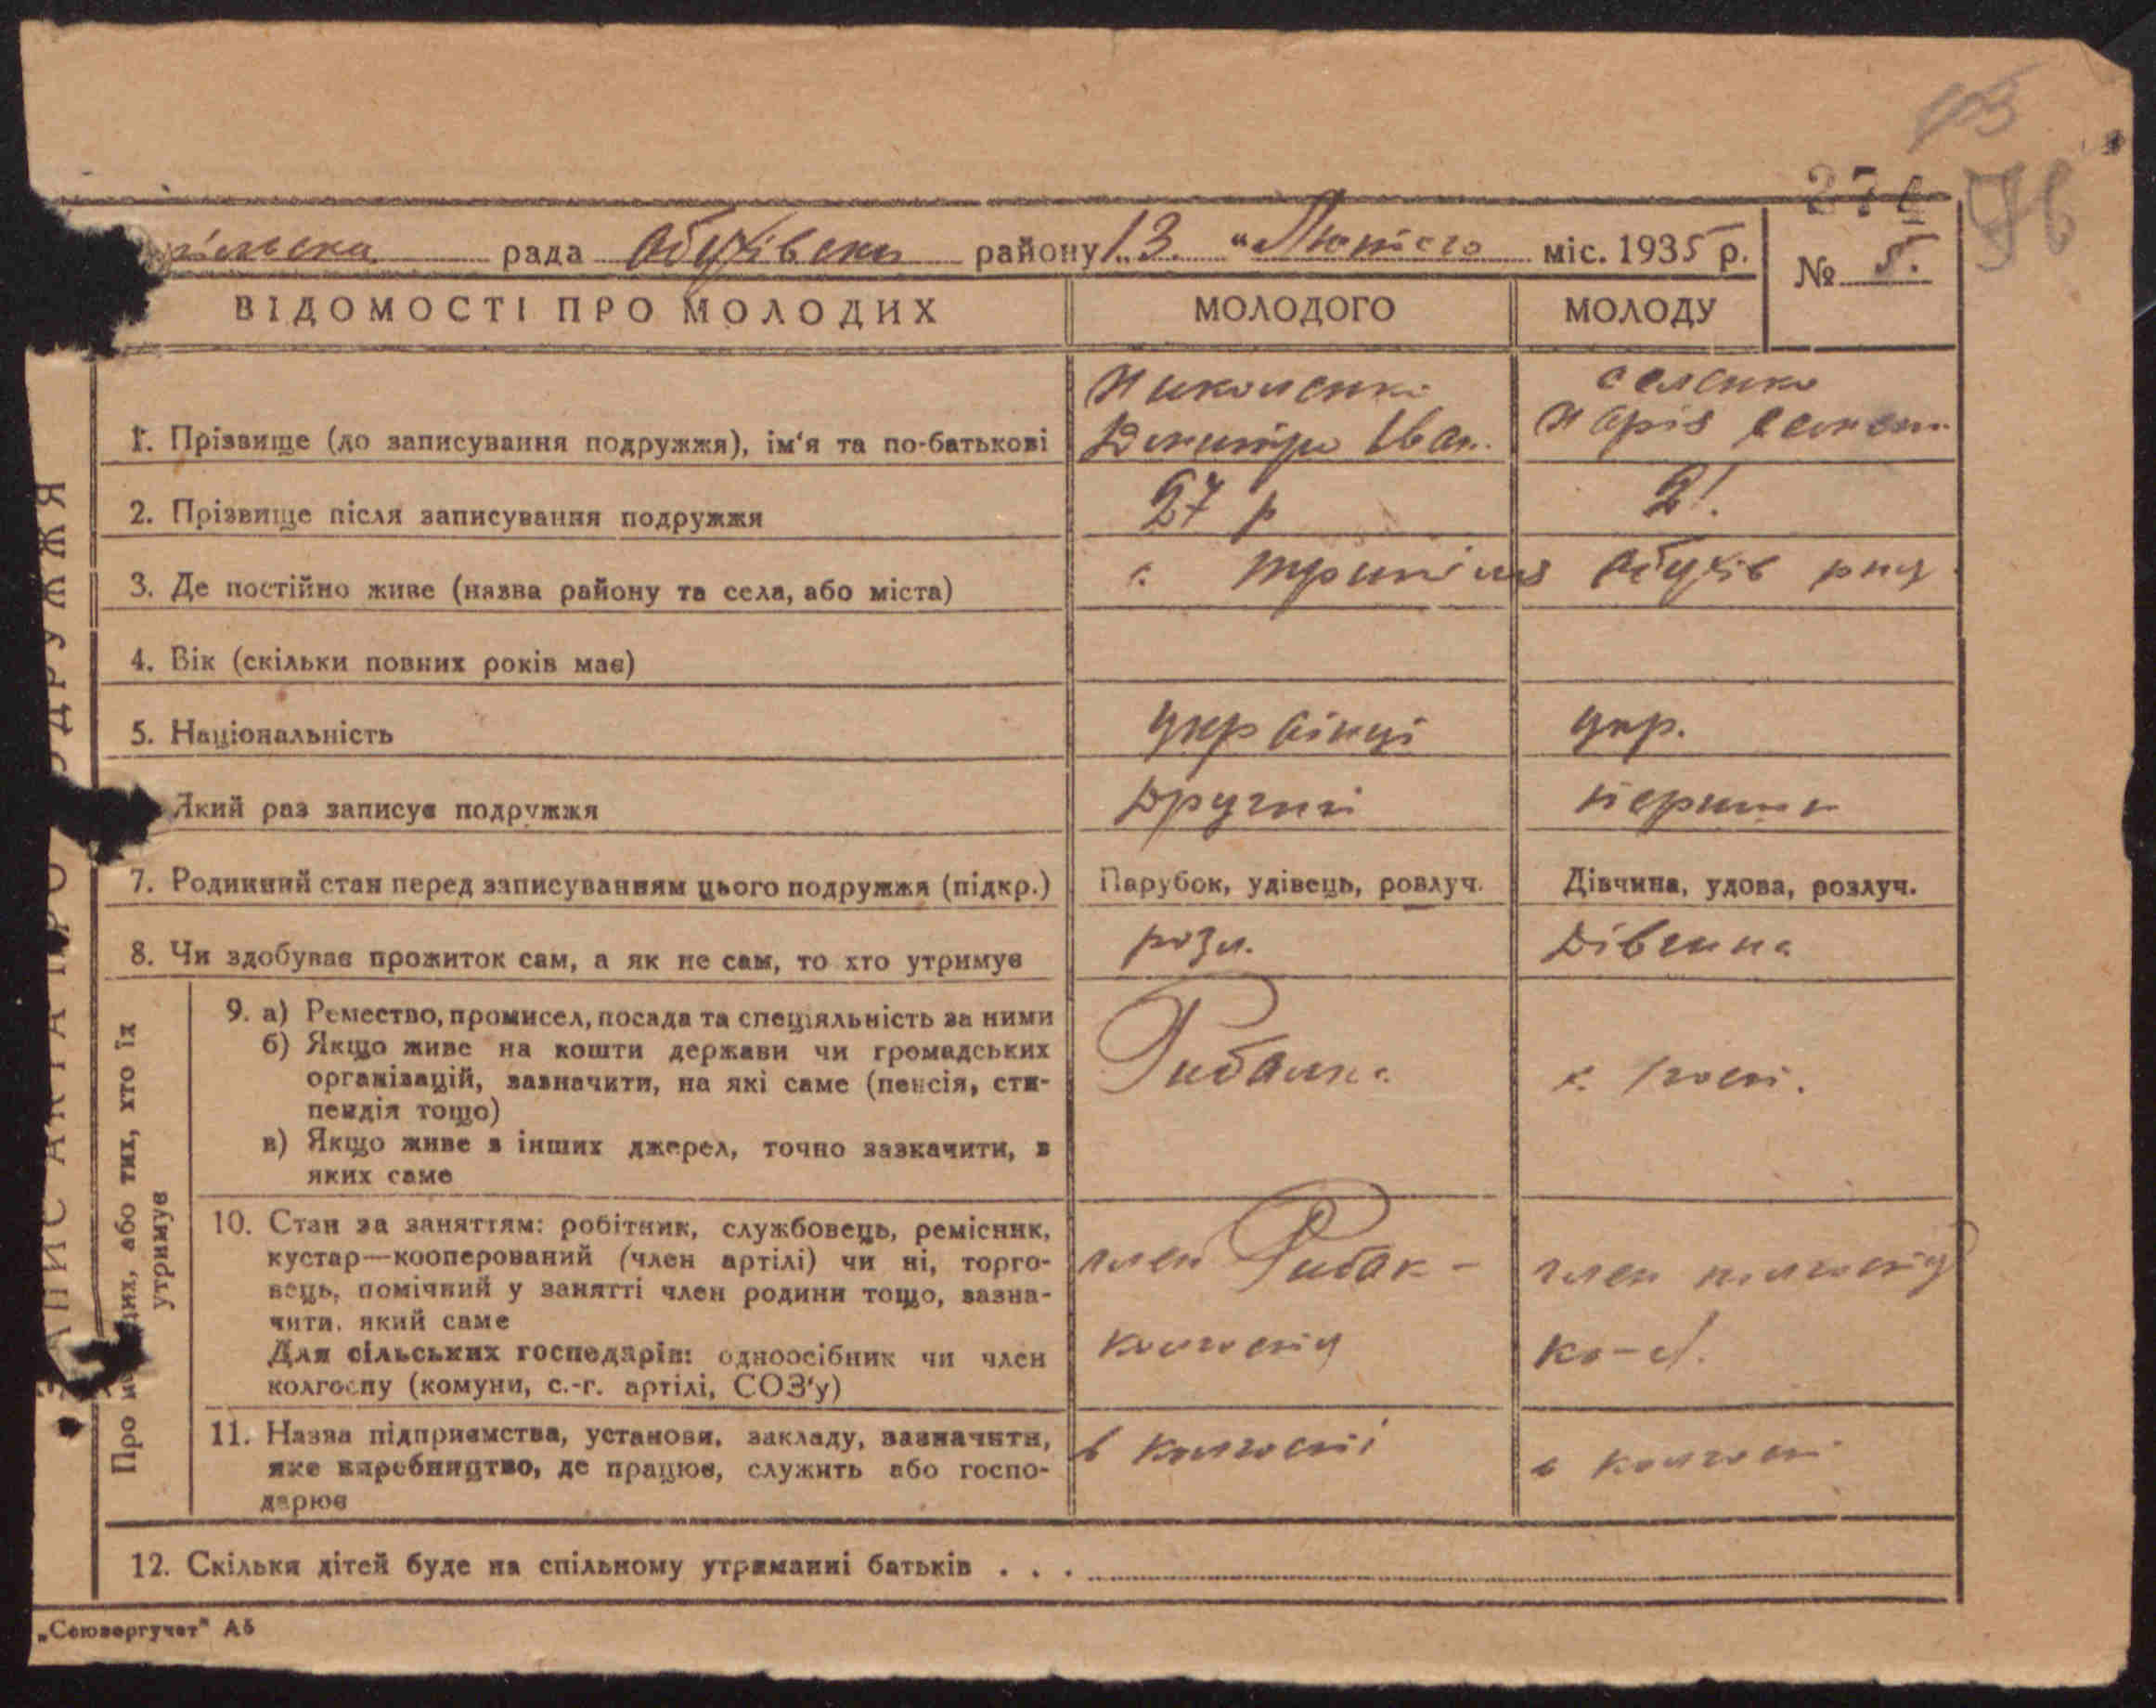 93
276
96
рада Обухівська району 13. "Лютого міс. 1935 р.
№ 5.
ВІДОМОСТІ ПРО МОЛОДИХ
МОЛОДОГО
МОЛОДУ
1. Прізвище (до записування подружжя), ім'я та по-батькові
Дмитро Іван.
Марія
2. Прізвище після записування подружжя
27 р
21.
3. Де постійно живе (назва району та села, або міста)
с. Трипілля Обухів рну
4. Вік (скільки повних років має)
5. Національність
українці
укр.
Який раз записує подружжя
Другий
7. Родинний стан перед записуванням цього подружжя (підкр.)
Парубок, удівець, розлуч.
Дівчина, удова, розлуч.
8. Чи здобуває прожиток сам, а як не сам, то хто утримує
розл.
Дівчина
9. а) Ремество, промисел, посада та спеціяльність за ними
б) Якщо живе на кошти держави чи громадських
організацій, зазначити, на які саме (пенсія, сти-
пендія тощо)
в) Якщо живе з інших джерел, точно зазначити, з
яких саме
Рибалка
10. Стан за заняттям: робітник, службовець, ремісник,
кустар—кооперований (член артілі) чи ні, торго-
вець, помічний у занятті член родини тощо, зазна-
чити, який саме
Для сільських господарів: одноосібник чи член
колгоспу (комуни, с.-г. артілі, СОЗ'у)
член Рибак-
колгоспу
член колгоспу
11. Назва підприємства, установи, закладу, зазначити,
яке виробництво, де працює, служить або госпо-
дарює
в колгоспі
в колгосп
12. Скільки дітей буде на спільному утриманні батьків . . .
"Союзоргучет" А5
ЗАПИС АКТА ПРО ОДРУЖЖЯ
Про молодих, або тих, хто їх
утримує